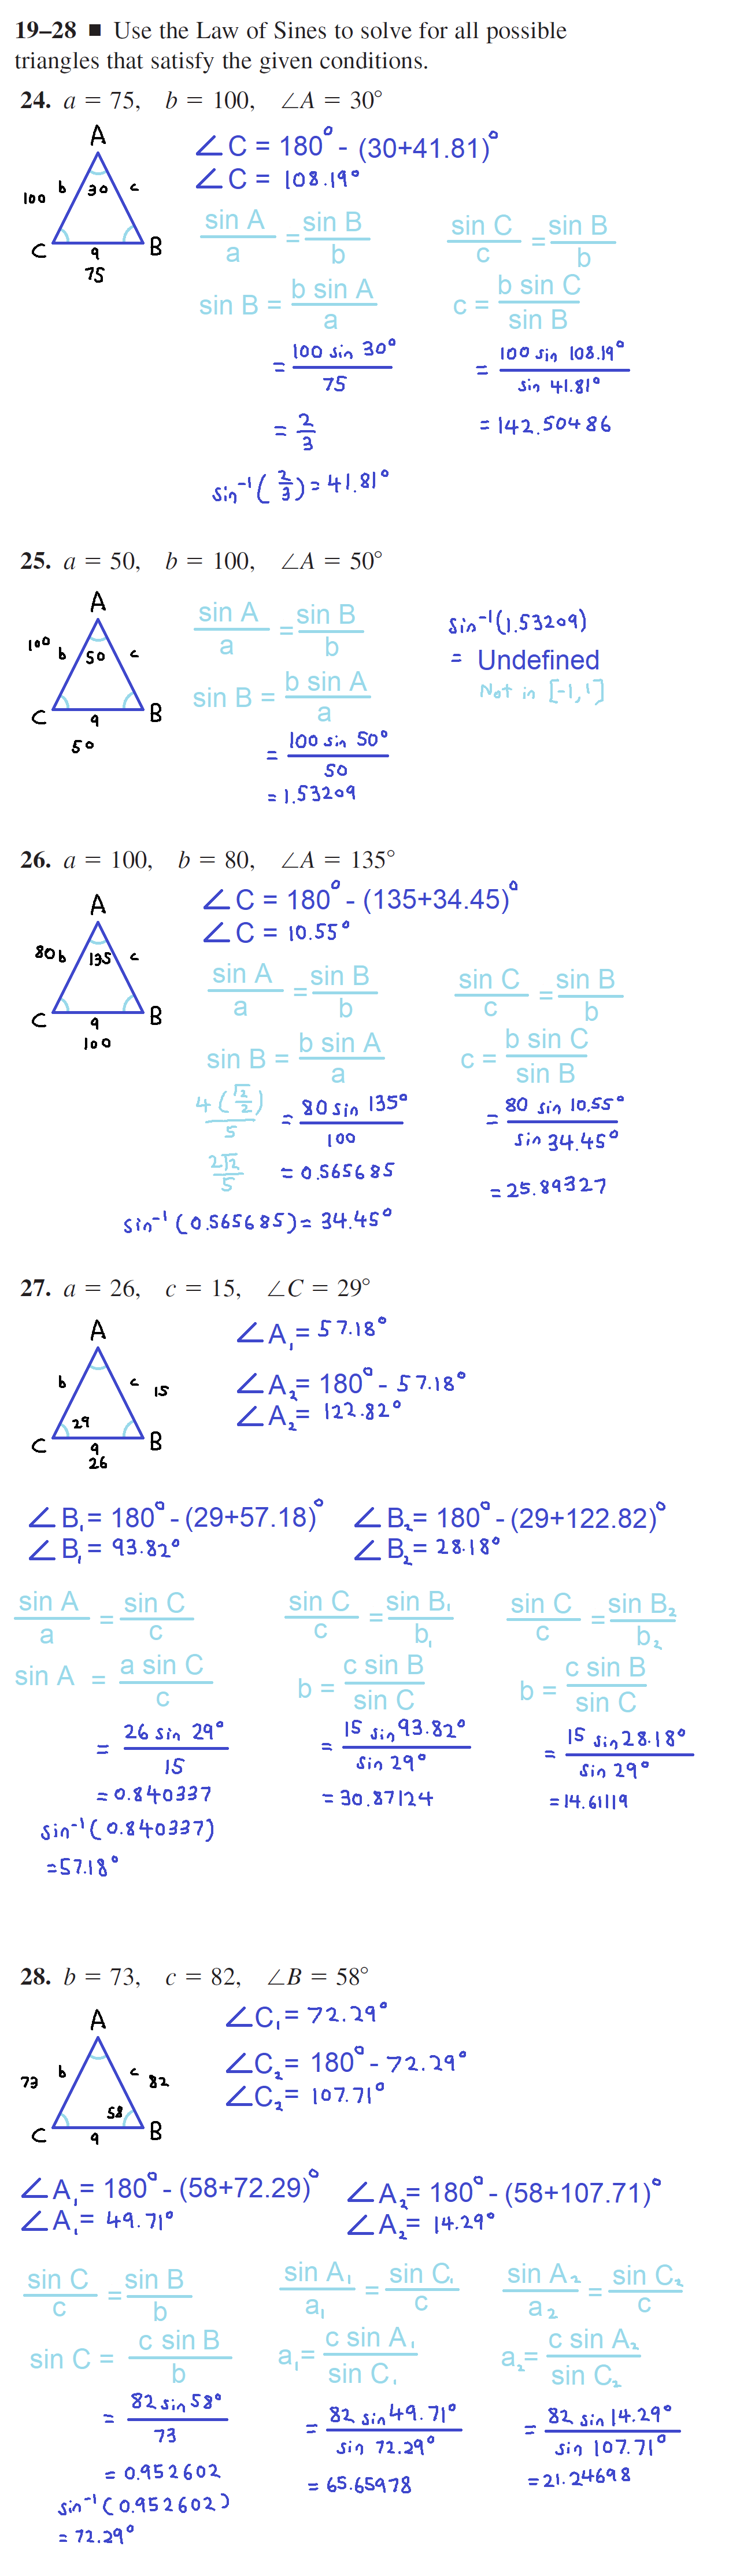 19–28 ■ Use the Law of Sines to solve for all possible
triangles that satisfy the given conditions.
24. a = 75, b = 100, ∠A = 30°
A
b 30 c
100
C B
a
75
∠C = 180° - (30+41.81)°
∠C = 108.19°
sin A / a = sin B / b
sin B = b sin A / a
= 100 sin 30° / 75
= 2/3
sin⁻¹(2/3) = 41.81°
sin C / c = sin B / b
c = b sin C / sin B
= 100 sin 108.19° / sin 41.81°
= 142.50486
25. a = 50, b = 100, ∠A = 50°
A
100 b 50 c
C B
a
50
sin A / a = sin B / b
sin B = b sin A / a
= 100 sin 50° / 50
= 1.53209
sin⁻¹(1.53209)
= Undefined
Not in [-1,1]
26. a = 100, b = 80, ∠A = 135°
A
80 b 135 c
C B
a
100
∠C = 180° - (135+34.45)°
∠C = 10.55°
sin A / a = sin B / b
sin B = b sin A / a
4(√2/2) / 5
2√2 / 5
= 80 sin 135° / 100
= 0.565685
sin⁻¹(0.565685) = 34.45°
sin C / c = sin B / b
c = b sin C / sin B
= 80 sin 10.55° / sin 34.45°
= 25.89327
27. a = 26, c = 15, ∠C = 29°
A
b c 15
29
C B
a
26
∠A₁ = 57.18°
∠A₂ = 180° - 57.18°
∠A₂ = 122.82°
∠B₁ = 180° - (29+57.18)°
∠B₁ = 93.82°
∠B₂ = 180° - (29+122.82)°
∠B₂ = 28.18°
sin A / a = sin C / c
sin A = a sin C / c
= 26 sin 29° / 15
= 0.840337
sin⁻¹(0.840337)
= 57.18°
sin C / c = sin B₁ / b₁
b = c sin B / sin C
= 15 sin 93.82° / sin 29°
= 30.87124
sin C / c = sin B₂ / b₂
b = c sin B / sin C
= 15 sin 28.18° / sin 29°
= 14.61119
28. b = 73, c = 82, ∠B = 58°
A
73 b c 82
58
C B
a
∠C₁ = 72.29°
∠C₂ = 180° - 72.29°
∠C₂ = 107.71°
∠A₁ = 180° - (58+72.29)°
∠A₁ = 49.71°
∠A₂ = 180° - (58+107.71)°
∠A₂ = 14.29°
sin C / c = sin B / b
sin C = c sin B / b
= 82 sin 58° / 73
= 0.952602
sin⁻¹(0.952602)
= 72.29°
sin A₁ / a₁ = sin C₁ / c
a₁ = c sin A₁ / sin C₁
= 82 sin 49.71° / sin 72.29°
= 65.65978
sin A₂ / a₂ = sin C₂ / c
a₂ = c sin A₂ / sin C₂
= 82 sin 14.29° / sin 107.71°
= 21.24698